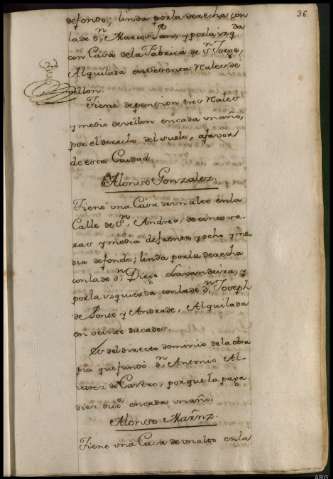 36
defondo; linda porla derecha con
lade Dn. Marcos Jans, y porla yzqda.
con Casa dela Fabrica de Sn. Jorge,
Alquilada en ochenta Rales de
vellon.
Tiene depension tres Rales
y medio devellon encada un año,
por el derecho del suelo, afavor
de esta Ciudad.
Alonso Gonzalez
Tiene una Casa de un alto enla
Calle de Sn. Andres, de cinco va-
ras y media defrente, y ocho y me-
dia defondo; linda porla derecha
con lade Dn. Diego, y
porla yzquierda con lade Dn. Joseph
de Ponte y Andrade, Alquilada
en veinte ducados.
Es del directo dominio dela obra
pia que fundó Dn. Antonio Al-
varez de Castro, porque le paga
diez ducs. encada un año.
Alonso Marñz
Tiene una Casa de un alto enla